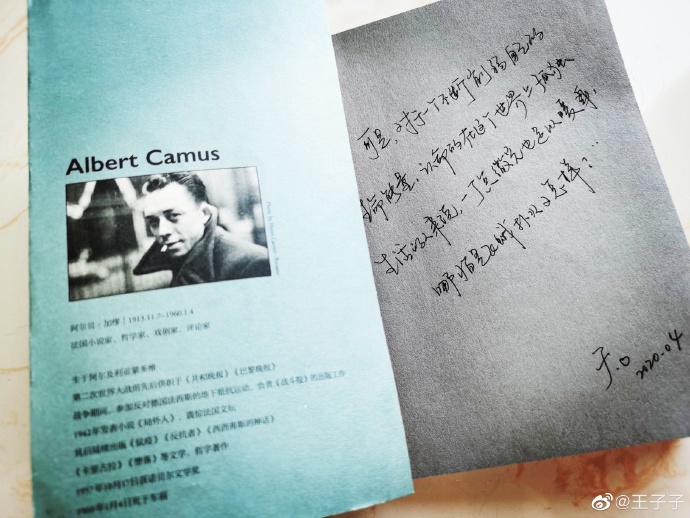 Albert Camus
阿尔贝·加缪｜1913.11.7-1960.1.4
法国小说家、哲学家、戏剧家、评论家
生于阿尔及利亚蒙多维
第二次世界大战前先后供职于《共和晚报》《巴黎晚报》
战争期间，参加反对德国法西斯的地下抵抗运动，负责《战斗报》的出版工作
1942年发表小说《局外人》，震惊法国文坛
其后陆续出版《鼠疫》《反抗者》《西西弗斯的神话》
《卡里古拉》《堕落》等文学、哲学著作
1957年10月17日获诺贝尔文学奖
1960年1月4日死于车祸
可是，对于一个不断削弱自己的
生命能量，认命的在这个世界上孤独
生活的人来说，一丁点微光也足以反射，
哪怕是又怎样？…
子.口 2020.04
@王子子